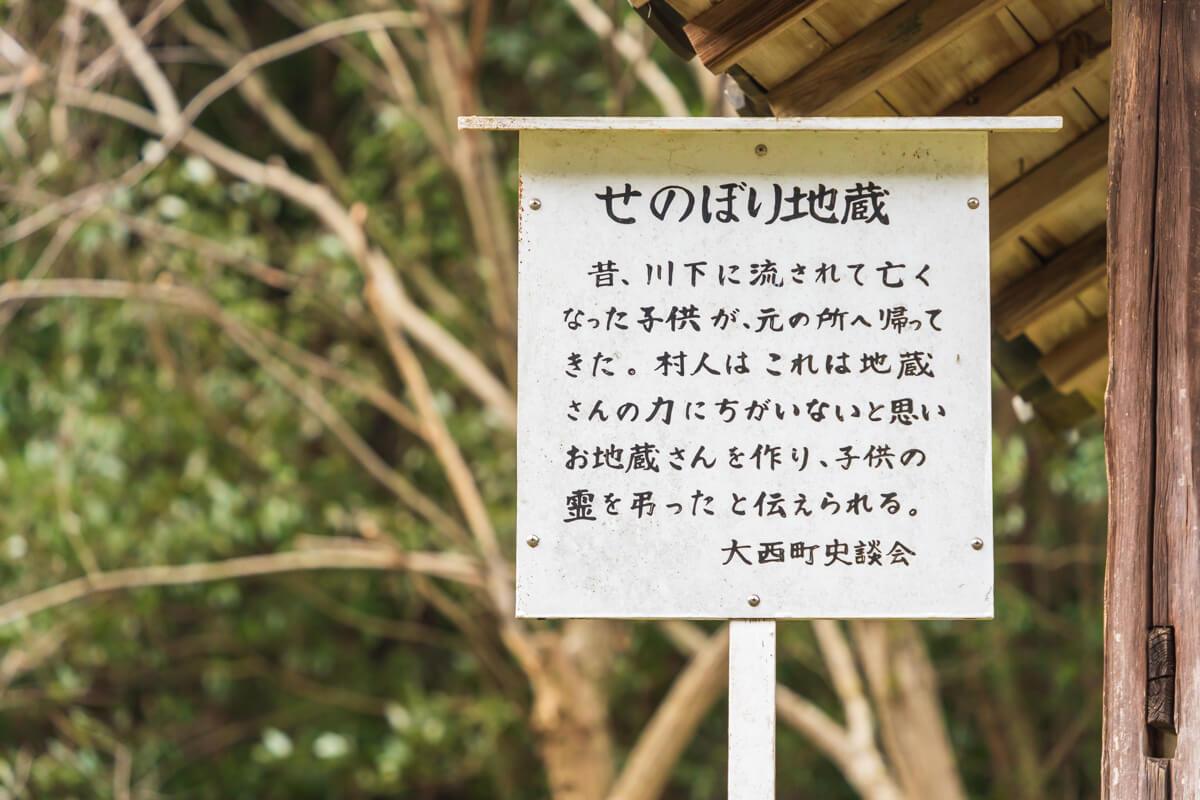 せのぼり地蔵
昔、川下に流されて亡く
なった子供が、元の所へ帰って
きた。村人はこれは地蔵
さんの力にちがいないと思い
お地蔵さんを作り、子供の
霊を弔ったと伝えられる。
大西町史談会